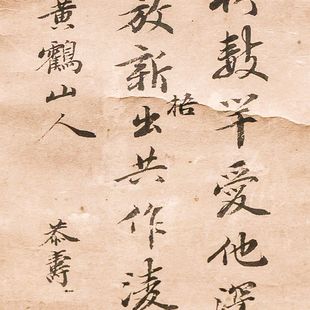 數竿愛他深
放新出共作淩
黃鶴山人
恭壽